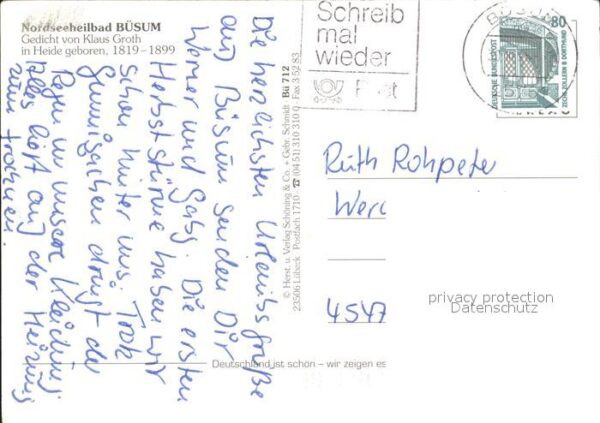 Nordseeheilbad BÜSUM
Gedicht von Klaus Groth
in Heide geboren, 1819–1899
Die herzlichsten Urlaubsgrüße
aus Büsum senden Dir
Werner und Gaby. Die ersten
Herbststürme haben wir
schon hinter uns. Trotz
Gummijacken dringt der
Regen in unsere Kleidung
Alles liegt auf der Heizung
zum trocknen.
© Herst. u. Verlag Schöning & Co. + Gebr. Schmidt Bü 712
23506 Lübeck · Postfach 1710 · ☎ (04 51) 310 310 Fax 3 52 83
Schreib
mal
wieder
Post
BÜSUM
80
DEUTSCHE BUNDESPOST
ZECHE ZOLLERN II DORTMUND
Ruth Rohpeter
Wer
4547
privacy protection
Datenschutz
Deutschland ist schön – wir zeigen es